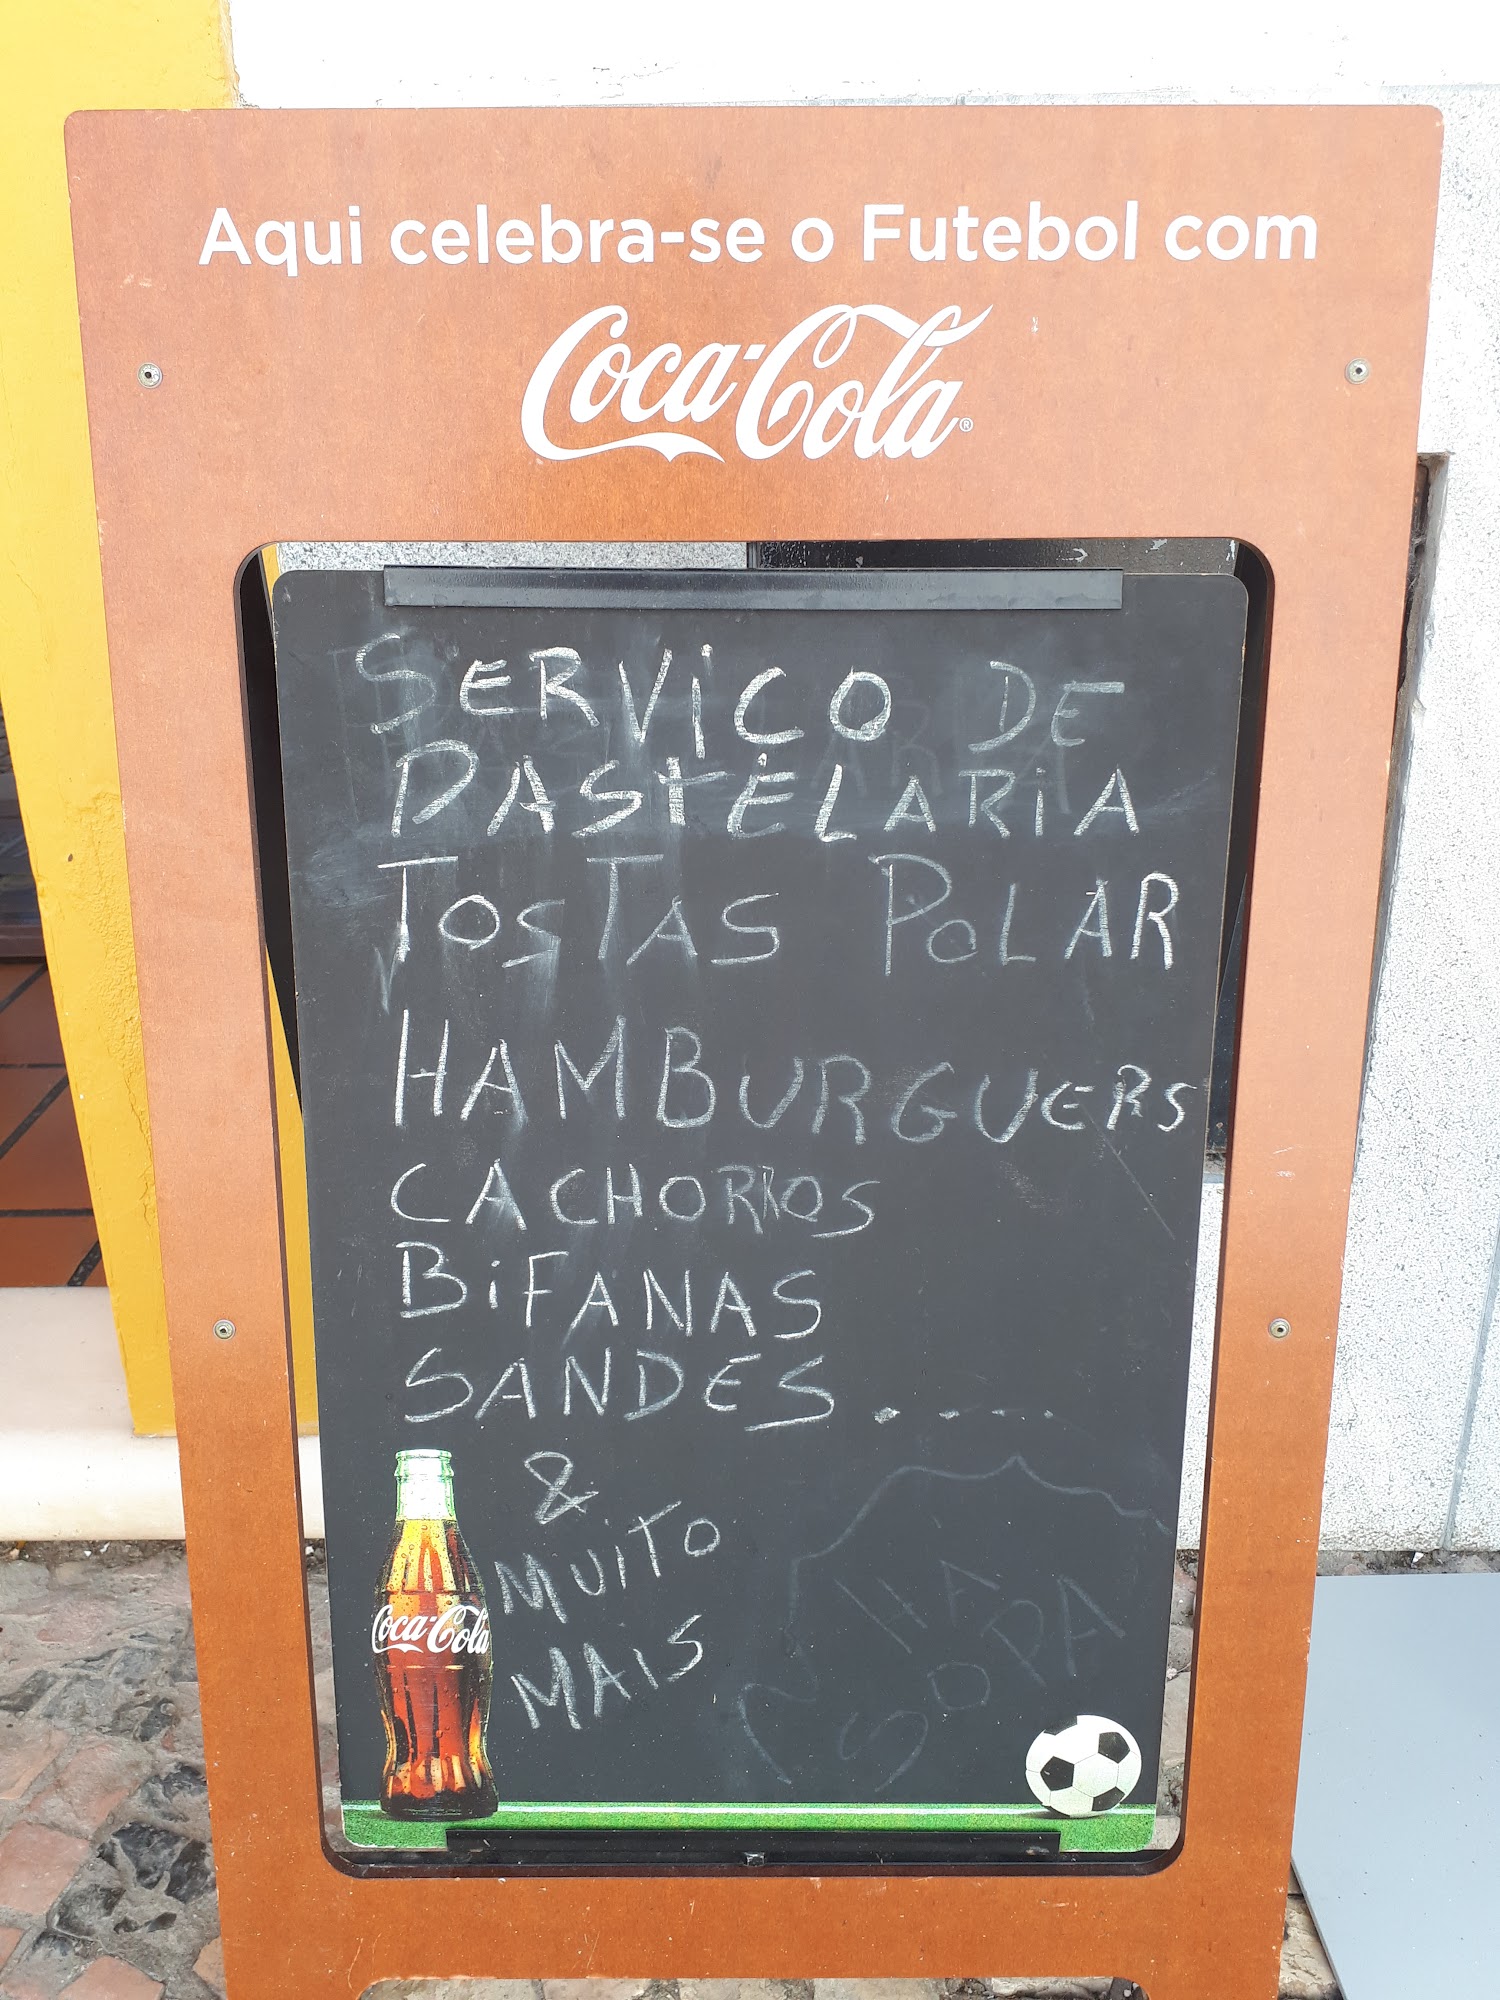 Aqui celebra-se o Futebol com
Coca-Cola®
SERViCO DE
PASTELARiA
TOSTAS POLAR
HAMBURGUERS
CACHORROS
BiFANAS
SANDES.....
&
MUiTO
MAiS
HÁ
SOPA
Coca-Cola